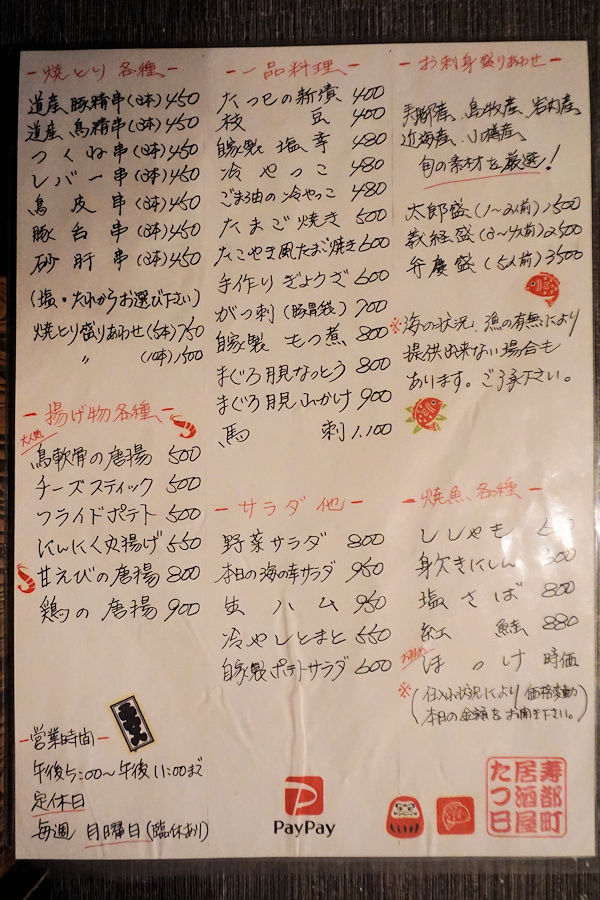 -焼とり 各種-
道産、豚精串(3本)450
道産、鳥精串(3本)450
つくね串(3本)450
レバー串(3本)450
鳥皮串(3本)450
豚舌串(3本)450
砂肝串(3本)450
(塩・たれからお選び下さい)
焼とり盛りあわせ(5本)750
〃 (10本)1500
-揚げ物各種-
大人気
鳥軟骨の唐揚 500
チーズスティック 500
フライドポテト 500
にんにく丸揚げ 550
甘えびの唐揚 800
鶏の唐揚 900
-営業時間-
午後5:00〜午後11:00まで
定休日
毎週 月曜日(臨休あり)
-一品料理-
たつ巳の新漬 400
枝豆 400
自家製 塩辛 480
冷やっこ 480
ごま油の冷やっこ 480
たまご焼き 500
たこやき風たまご焼き 600
手作りぎょうざ 600
がつ刺(豚胃袋) 700
自家製 もつ煮 800
まぐろ月見なっとう 800
まぐろ月見山かけ 900
馬刺 1.100
-サラダ 他-
野菜サラダ 800
本日の海の幸サラダ 950
生ハム 950
冷やしとまと 550
自家製ポテトサラダ 600
PayPay
-お刺身盛りあわせ-
寿都産、島牧産、岩内産、
近海産、小樽産、
旬の素材を厳選!
太郎盛(1〜2人前)1500
義経盛(3〜4人前)2500
弁慶盛(5人前)3500
※海の状況、漁の有無により
提供出来ない場合も
あります。ご了承下さい。
-焼魚、各種-
ししゃも
身欠きにしん
塩さば 800
紅鮭 880
ほっけ 時価
※(仕入れ状況により価格変動
本日の金額をお聞き下さい。)
寿都町
居酒屋
たつ巳